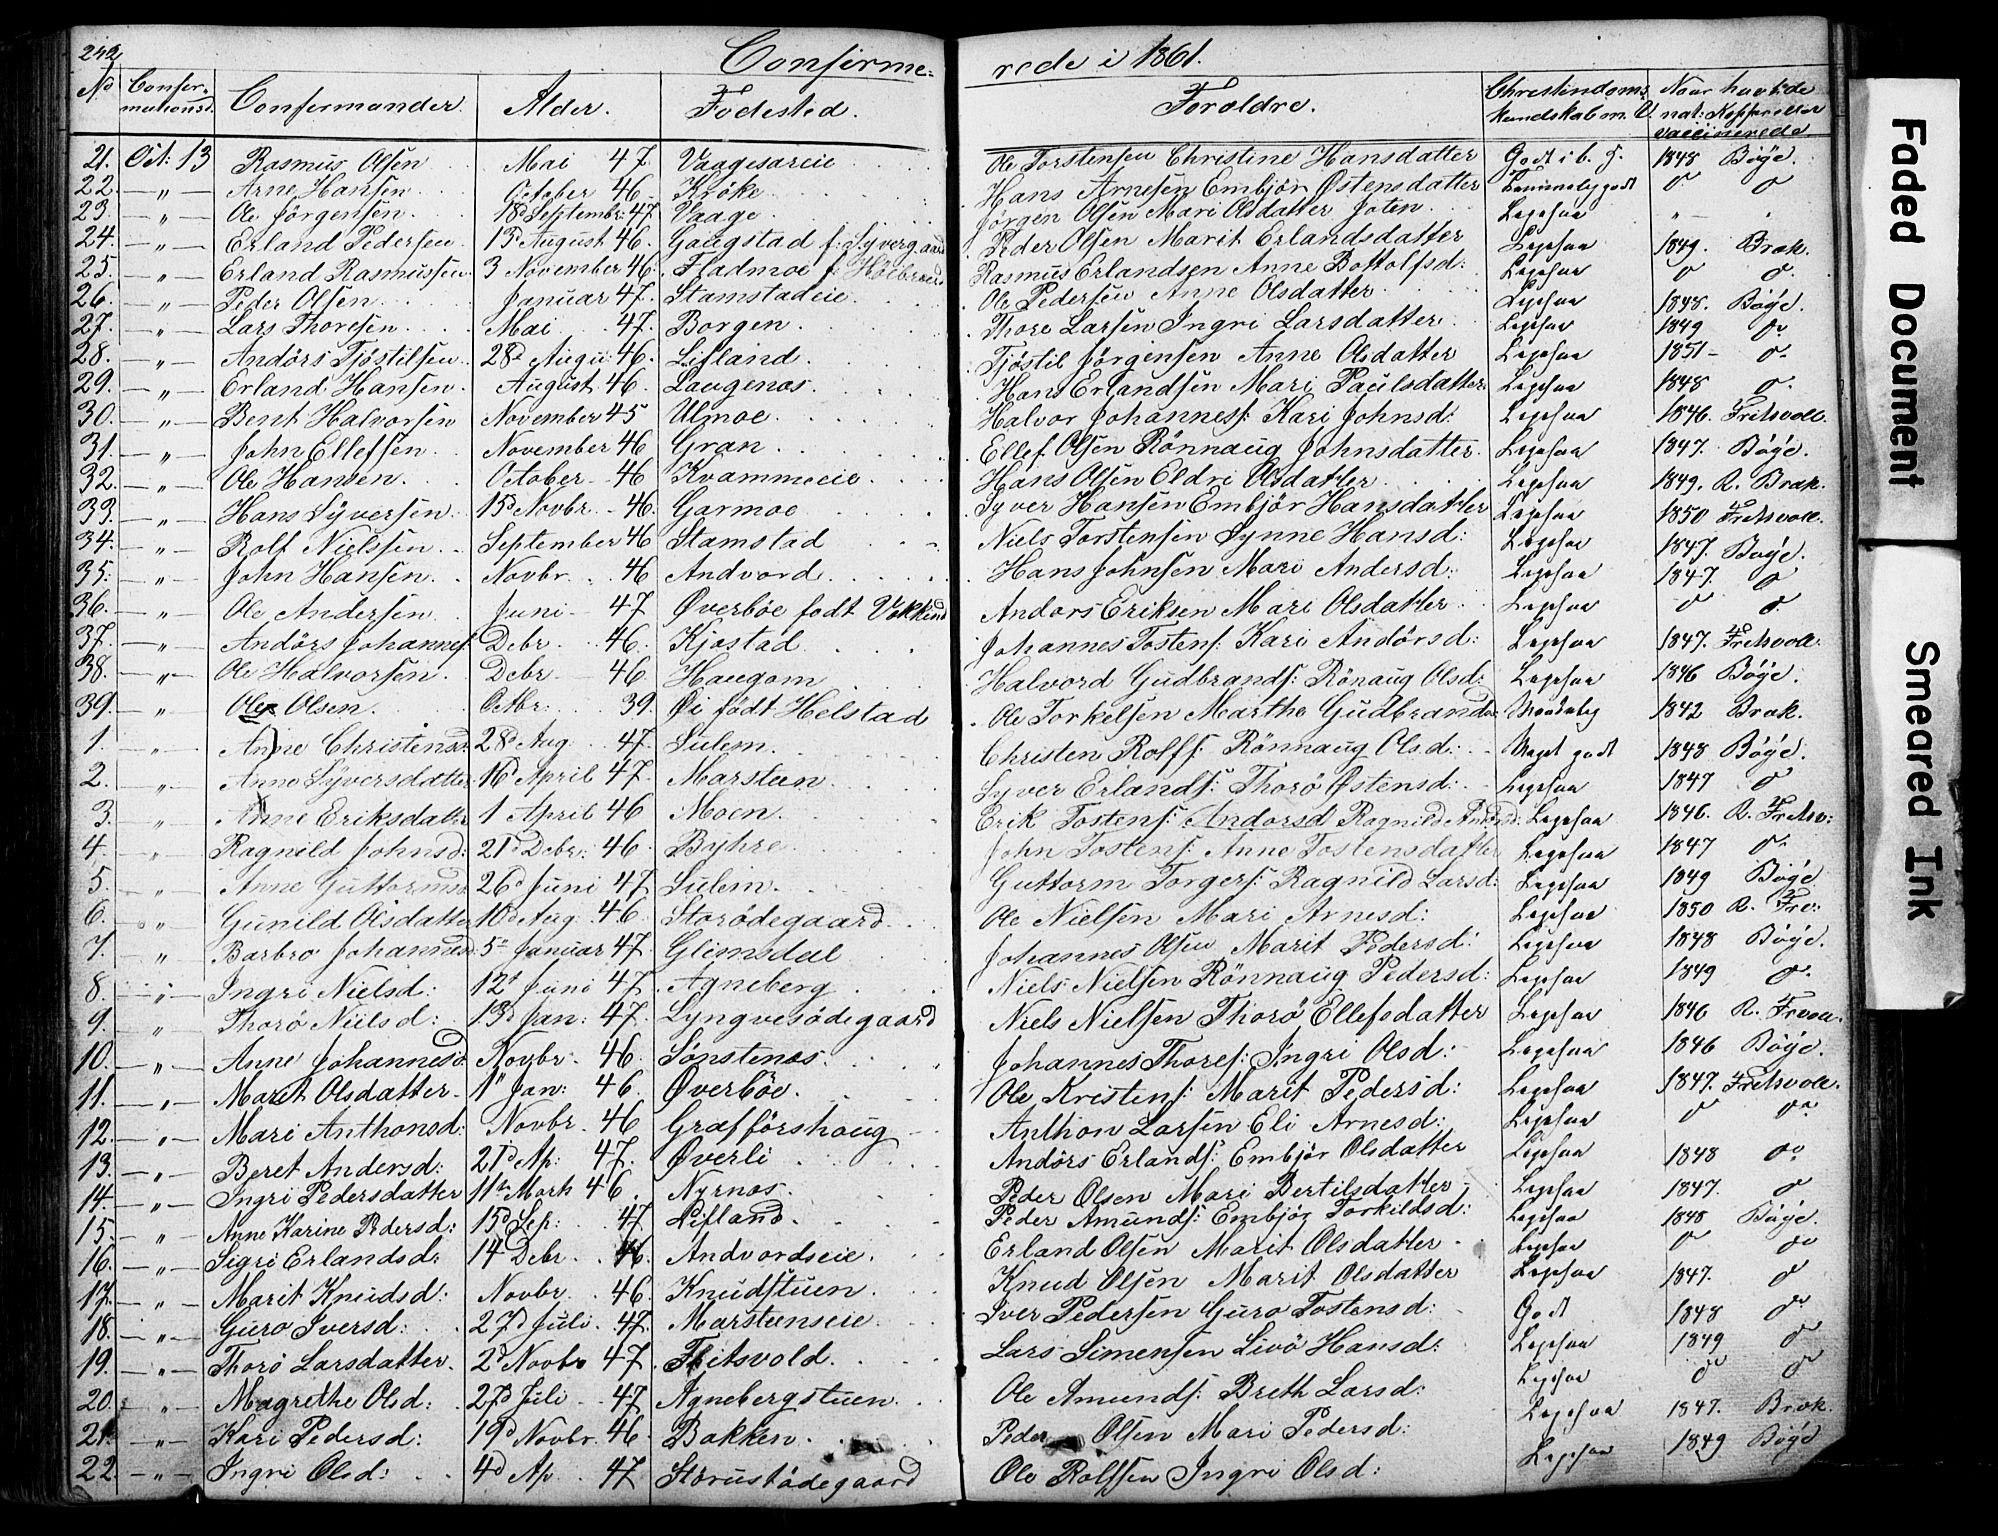 242
Confirme=
rede i 1861.
No Confir=mationsd. Confermander. Alder. Fødested. Foroldre. Christindoms kundskab m. V. Naar havt de nat: Kopper eller vaccinerede
21. Oct: 13 Rasmus Olsen Mai 47. Vaagesareie Ole Torstensen Christine Hansdatter Godt i b. f. 1848 Böye.
22. —"— Arne Hansen October 46. Kröke Hans Arnesen Embjör Östensdatter godt o o
23. —"— Ole Jörgensen 18d Septembr: 47. Vaage Jörgen Olsen Mari Olsdatter Joten Ligesaa " - .
24. —"— Erland Pedersen 13d August 46. Gaugstad f: Syvergaard Peder Olsen Marit Erlandsdatter Ligesaa 1849. Brak.
25. —"— Erland Rasmussen 3 November 46. Fladmoe f: Rasmus Erlandsen Anne Bottolfsd: Ligesaa o o.
26. —"— Peder Olsen Januar 47. Stamstadeie Ole Pedersen Anne Olsdatter Ligesaa 1848. Böye.
27. —"— Lars Thoresen Mai 47. Borgen Thore Larsen Ingri Larsdatter Ligesaa 1849 o
28. —"— Andörs Tjöstilsen 28d Augu: 46. Lifland Tjöstil Jörgensen Anne Olsdatter Ligesaa 1851- o.
29. —"— Erland Hansen August 46. Laugenæs. Hans Erlandsen Mari Paulsdatter Ligesaa 1848 o.
30. —"— Bent Halvorsen November 45 Ulmoe Halvor Johanness: Kari Johnsd: Ligesaa 1846. Fritsvoll.
31. —"— John Ellefsen November 46 Gran Ellef Olsen Rönnaug Johnsdatter. Ligesaa 1847. Böye.
32. —"— Ole Hansen October 46 Kvammeeie Hans Olsen Eldri Olsdatter Ligesaa 1849. R. Brak.
33. —"— Hans Syversen 15d Novbr. 46. Garmoe Syver Hansen Embjör Hansdatter Ligesaa 1850 Fritsvoll.
34. —"— Rolf Nielssen September 46 Stamstad Niels Torstensen Synne Hansd: Ligesaa 1847. Böye.
35. —"— John Hansen Novbr. 46 Andvord Hans Johnsen Mari Andersd: Ligesaa 1847. o
36. —"— Ole Andersen Juni 47 Överböe født Anders Eriksen Mari Olsdatter Ligesaa o o
37. —"— Andörs Johannes Debr. 46. Kjæstad Johannes Tostens: Kari Andörsd: Ligesaa 1847. Fritsvoll.
38. —"— Ole Halvorsen Debr 46 Haugom Halvord Gudbrands: Rönaug Olsd: Ligesaa 1846 Böye.
39. " Ole Olsen Octbr. 39. Öi født Helstad Ole Torkelsen Marthe Gudbrandsd 1842 Brak.
1. —"— Anne Christensd: 28d Aug 47. Sulem Christen Rolfs: Rönnaug Olsd: Meget godt 1848 Böye.
2. —"— Anne Syversdatter 16d April 47. Marsteen Syver Erlands: Thorö Östensd: Ligesaa 1847 o
3. —"— Anne Eriksdatter 1 April 46 Moen Erik Tostens: Andorsd Ragnild Ligesaa 1846. R.
4. —"— Ragnild Johnsd: 21d Debr: 46. Byhre John Tostens: Anne Tostensdatter Ligesaa 1847 o.
5. —"— Anne Guttormsd 26d Juni 47. Sulem. Guttorm Torgers: Ragnild Larsd: Ligesaa 1849 Böye
6. —"— Gunild Olsdatter 10d Aug 46. Storödegaard Ole Nielsen Mari Arnesd: Ligesaa 1850 R. Fre:
7. —"— Barbro Johannesd 5te Januar 47. Glimsdal Johannes Olsen Marit Pedersd: Ligesaa 1848 Böye.
8. —"— Ingri Nielsd: 12t Juni 47. Agneberg Niels Nielsen Rönnaug Pedersd: Ligesaa 1849 o.
9. —"— Thorö Nielsd: 13d Jan: 47. Lyngvesödegaard Niels Nielsen Thorö Ellefsdatter Ligesaa 1846 R. Frvoll.
10. —"— Anne Johannesd: Novbr. 46. Sönstenæs Johannes Thores: Ingri Olsd: Ligesaa 1846 Böye.
11. —"— Marit Olsdatter. 1st Jan: 46. Överböe. Ole Kristens: Marit Pedersd: Ligesaa 1847. Fritsvoll.
12. —"— Mari Anthonsd: Novbr. 46 Grafförshaug Anthon Larsen Eli Arnesd: Ligesaa o o
13. —"— Beret Andersd: 21d Ap: 47. Överli Andörs Erlands: Embjör Olsdatter Ligesaa 1848 o
14. —"— Ingri Pedersdatter 11te Marts 46. Nyrnæs. Peder Olsen Mari Bertilsdatter Ligesaa 1847. o
15. —"— Anne Karine Pedersd: 15d Sep: 47 Lifland. Peder Amunds: Embjör Torkildsd: Ligesaa 1848 Böye.
16. —"— Sigri Erlandsd: 14 Debr. 46. Andvordseie. Erland Olsen Marit Olsdatter Ligesaa o o
17. —"— Marit Knudsd: Novbr. 46. Knudstuen. Knud Olsen Marit Olsdatter Ligesaa 1847. o
18. —"— Guro Iversd: 27d Juli 47. Marsteenseie. Iver Pedersen Guro Tostensd: Godt 1848 o
19. —"— Thorö Larsdatter. 2d Novbr 47. Fritsvold. Lars Simensen Livö Hansd: Ligesaa 1849 o
20. —"— Magrethe Olsd: 27d Juli 47. Agnebergstuen. Ole Amunds: Breth Larsd: Ligesaa o o
21. —"— Kari Pedersd: 19d Novbr. 46. Bakken. Peder Olsen Mari Pedersd: Ligesaa 1847. Brak.
22. —"— Ingri Olsd: 4d Ap 47 Storustödegaard Ole Rolfsen Ingri Olsd: Ligesaa 1849 Böye
Faded Document
Smeared Ink